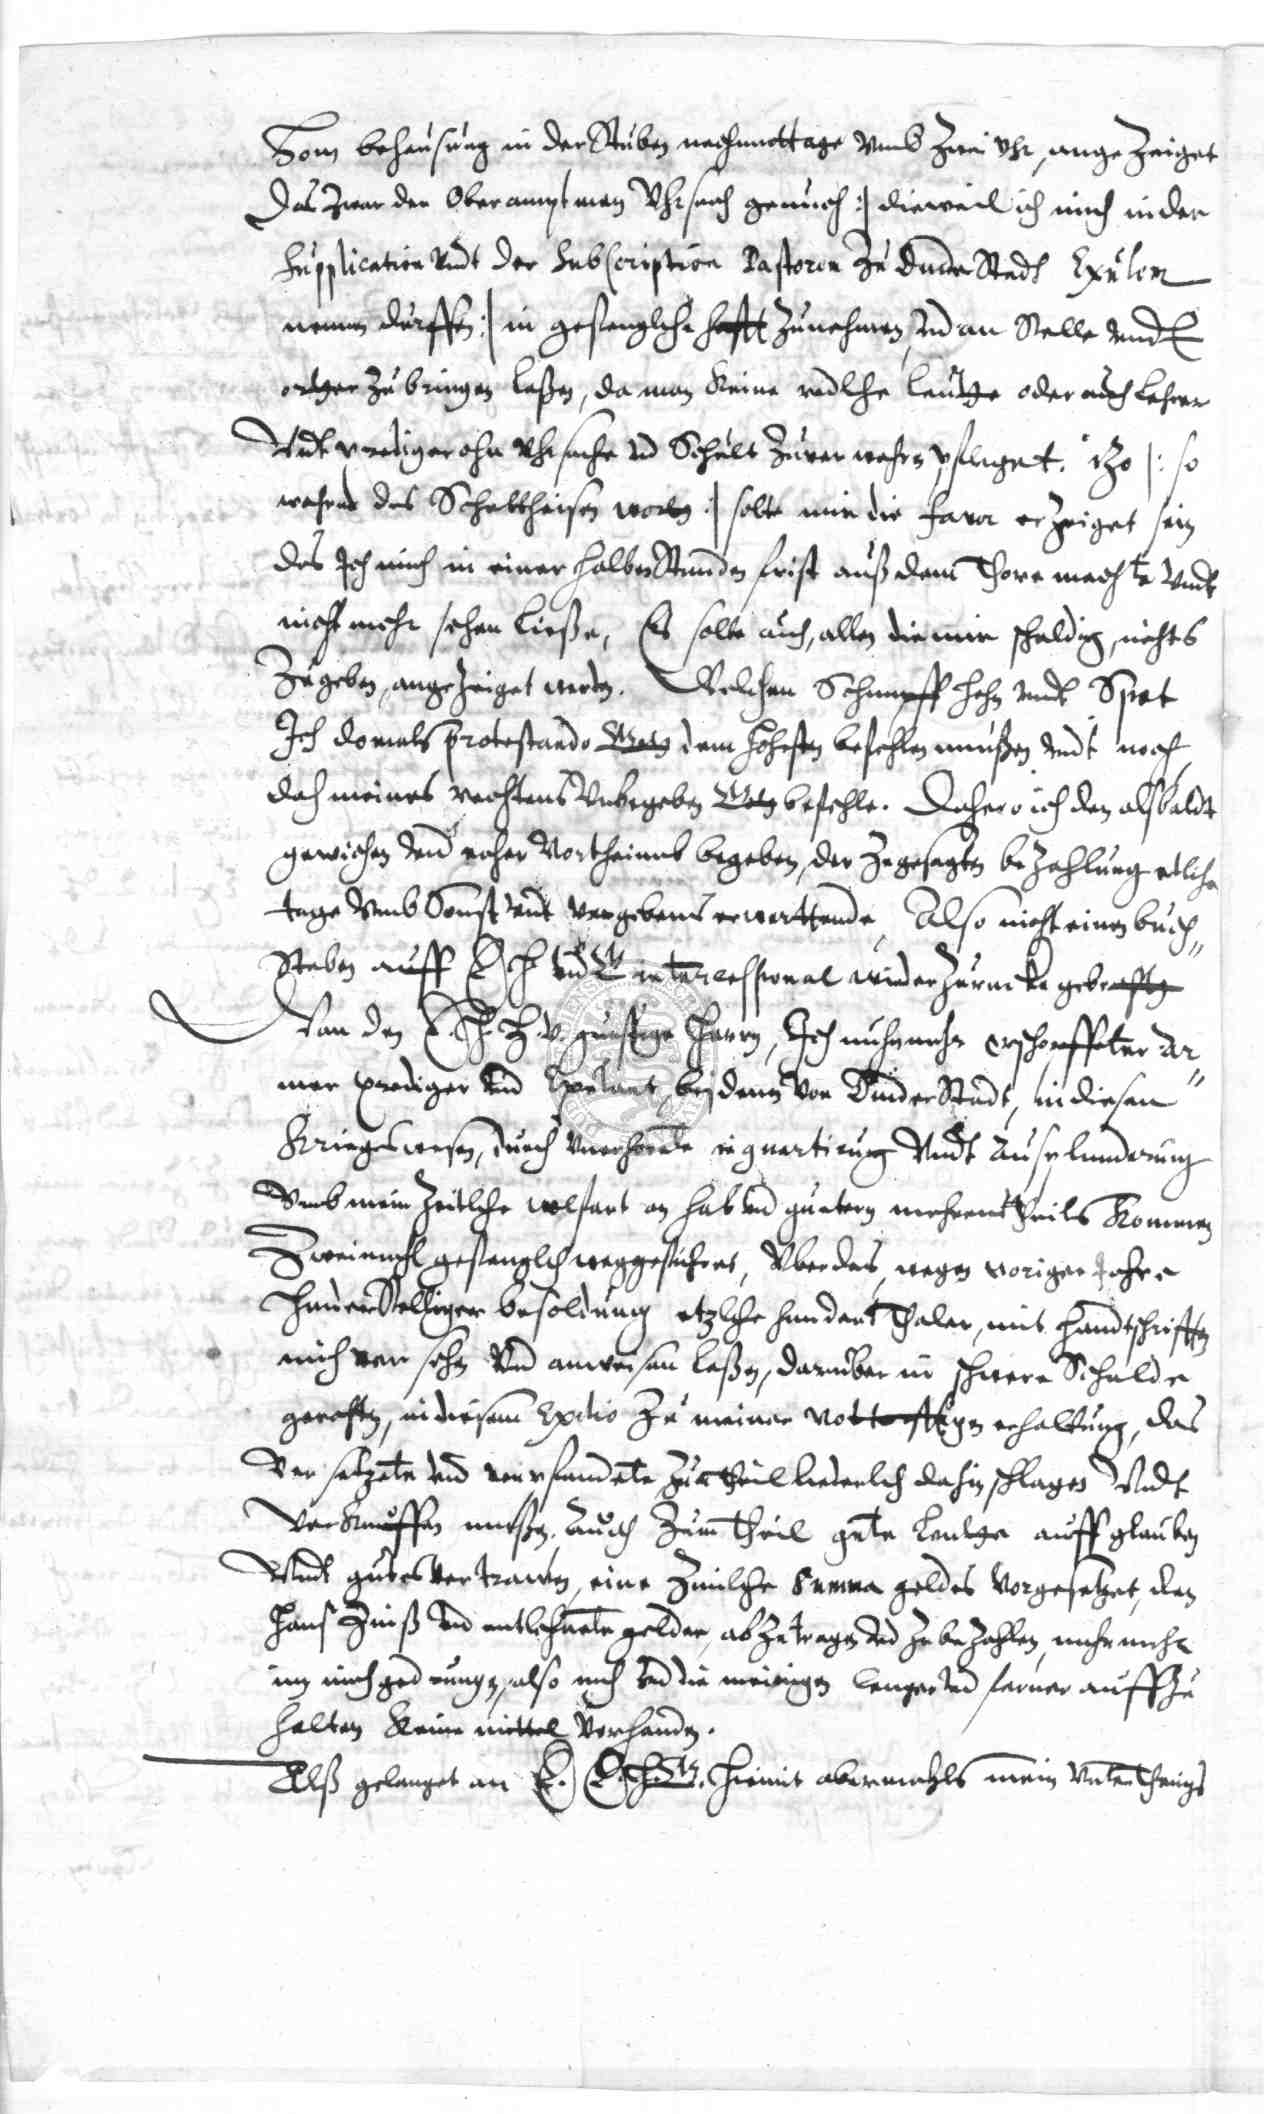 Som behausung in der Stuben nachmittage umb Zwei Uhr, angezeiget
Das Zwar der Oberamptman Uhrsach genuch :| dieweil ich mich in der
Supplication undt der Subscription Pastorem Zu DuderStadt Exulem
nennen durffen :| in gefengliche hafft Zunehmen, und an Stelle undt
orter Zu bringen laßen, da man Keine redliche leutte oder auch Lehrer
Undt prediger ohn Uhrsache und Schult Zuverwahren pfleget. itzo |: so
wahren des Schultheisen wortt :| solte mir die favor erzeiget sein
das Ich mich in einer halben Stunden frist auß dem Thore machte Undt
nicht mehr sehen ließe, Es solte auch, allen die mir schuldig, nichts
Zugeben, angezeiget werden. Welchen Schimpff hohn undt Spot
Ich domals protestando Gott dem höhesten befehlen mußen undt noch,
doch meines rechtens Unbegeben Gott befehle. Dahero ich den alsbaldt
gewichen und naher Northeimb begeben, der Zugesagten beZahlung etliche
tage UmbSonst und vergebens erwartende, Also nicht einen buch
Staben auff E H und intercessional wieder Zurucke gebracht
Wan den E. H. gunstige Herrn, Ich nuhnmehr erschopffeter Ar
mer prediger und Exulant, bei denen Von DuderStadt, in diesen
Kriegswesen, durch unerhorte inquartirung Undt Ausplunderung
Umb mein Zeitliche wolfart an hab und guetern mehrentheils Kommen
Zweimahl gefenglich weggefuhret, Uber das, wegen voriger Jahre
hinterStelliger besoldung etzliche hundert Thaler, mit handtschrifften
mich vorsehn und anweisen laßen, daruber in schwere Schulde
gerathen, in diesem Exilio Zu meiner notturfftigen erhaltung, das
Versetzete und verpfandete Zum theil liederlich dahin schlagen Undt
Verkauffen mußen, Auch Zum theil gute Leutte auff glauben
Undt gutes Vertrawen, eine Zimliche Summa geldes Vorgesetzet, den
Haus Zinß und entlehnete gelder, abzutragen und Zubezahlen, nuhnmehr
in mich gedrungen, also mich und die meinigen lenger und ferner auffZu
halten Keine mittel Vorhanden.
Alß gelanget an E. E. H. hiemit abermahls mein Untertheniges